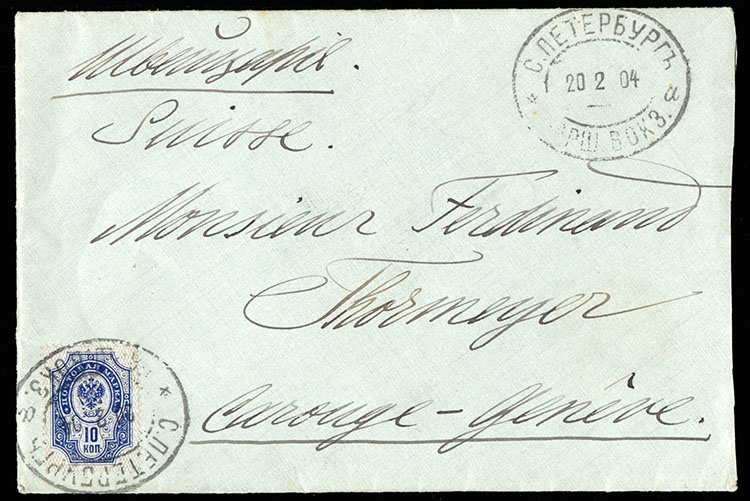 Швейцарія.
Suisse.
С.ПЕТЕРБУРГЪ
20 2 04
* а
ВАРШ.ВОКЗ.
Monsieur Ferdinand
Thormeyer
Carouge-Genève.
ПОЧТОВАЯ МАРКА
10
КОП.
* С.ПЕТЕРБУРГЪ а